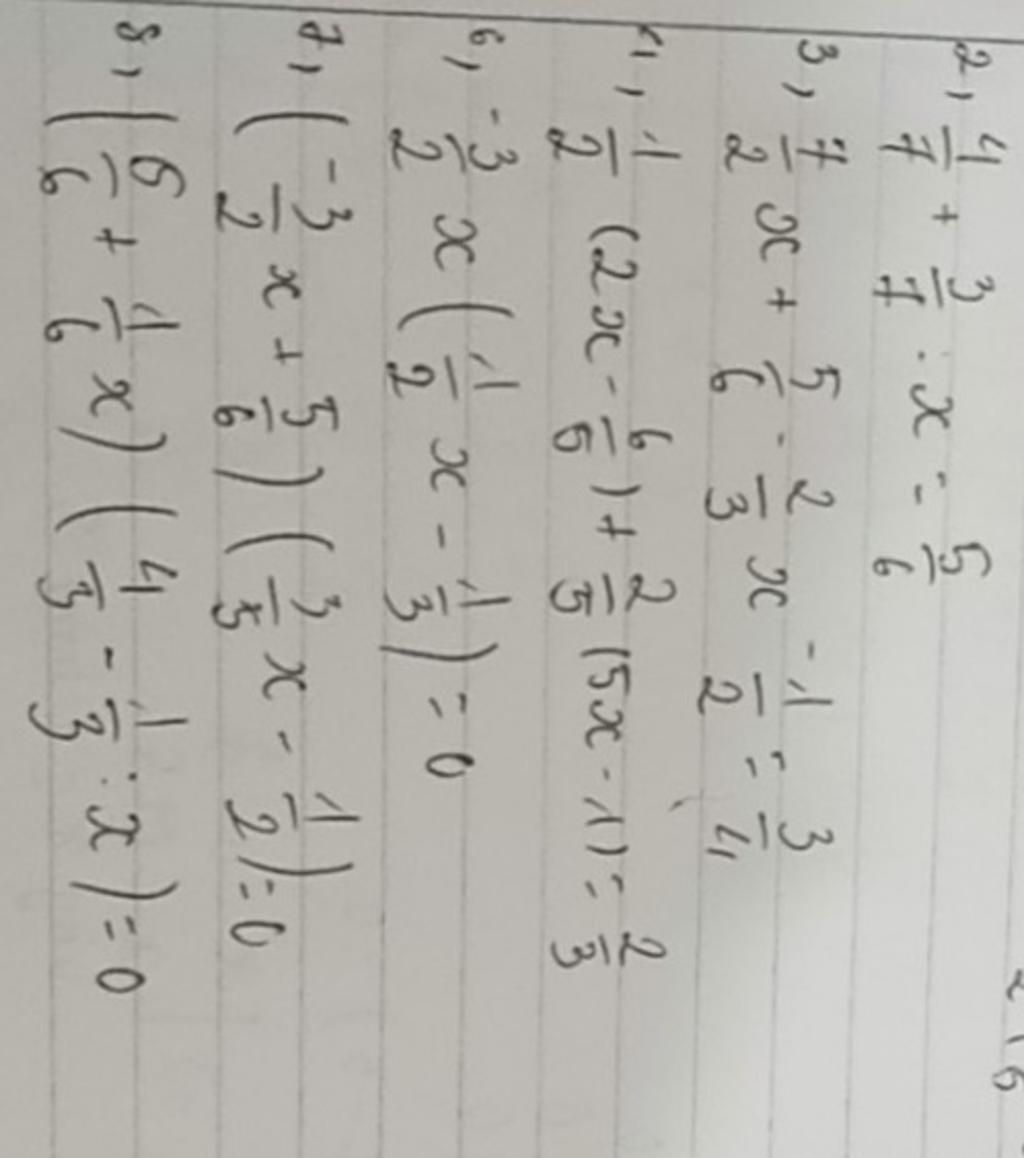 2, 4/7 + 3/7 : x = 5/6
3, 7/2 x + 5/6 - 2/3 x - 1/2 = 3/4
1/2 (2x - 6/5) + 2/5 (5x - 1) = 2/3
6, -3/2 x (1/2 x - 1/3) = 0
7, (-3/2 x + 5/6) (3/5 x - 1/2) = 0
8, (6/6 + 1/6 x) (4/3 - 1/3 : x) = 0